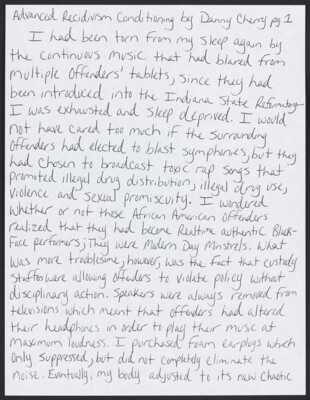 Advanced Recidivism Conditioning by Danny Cherry pg 1
I had been torn from my sleep again by
the continuous music that had blared from
multiple Offenders' tablets, since they had
been introduced into the Indiana State Reformatory.
I was exhausted and sleep deprived. I would
not have cared too much if the surrounding
Offenders had elected to blast symphonies, but they
had chosen to broadcast toxic rap songs that
promoted illegal drug distribution, illegal drug use,
violence and sexual promiscuity. I wondered
whether or not those African American offenders
realized that they had become Realtime authentic Black-
Face performers; They were Modern Day Minstrels. What
was more troublesome, however, was the fact that custody
staff were allowing offenders to violate policy without
disciplinary action. Speakers were always removed from
televisions which meant that offenders had altered
their headphones in order to play their music at
maximum loudness. I purchased foam earplugs which
only suppressed, but did not completely eliminate the
noise. Eventually, my body adjusted to its new chaotic